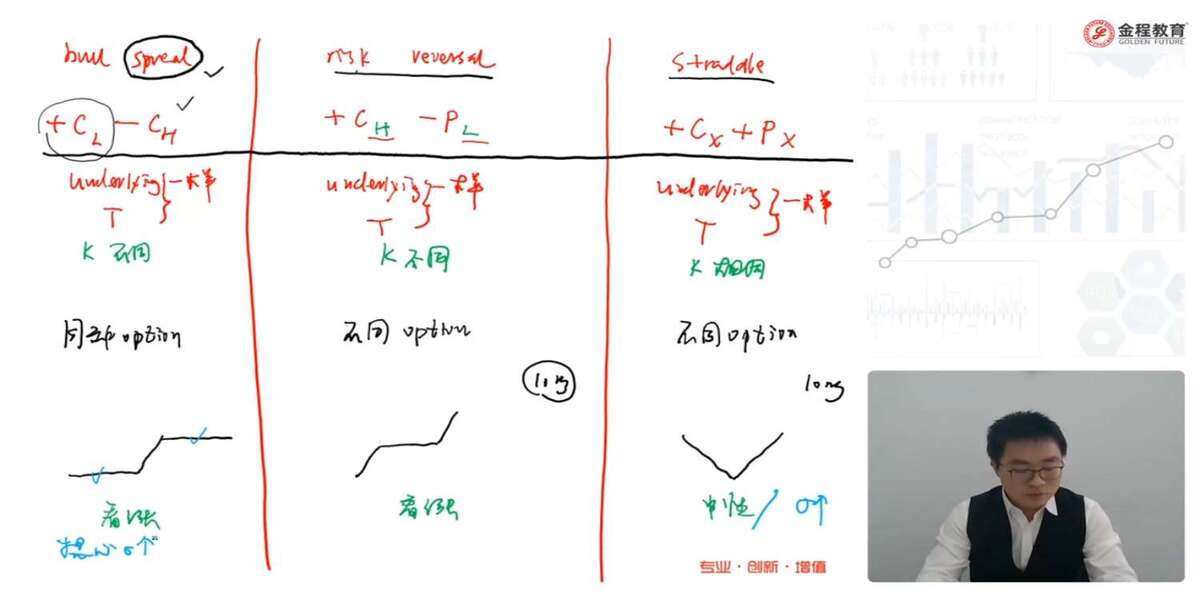 bull spread
+C_L - C_H
underlying 一样
T
K 不同
同种option
看涨
担心σ个
risk reversal
+C_H -P_L
underlying 一样
T
K 不同
不同 option
long
看涨
straddle
+C_X + P_X
underlying 一样
T
K 相同
不同option
long
中性 / σ↑
金程教育
GOLDEN FUTURE
专业·创新·增值